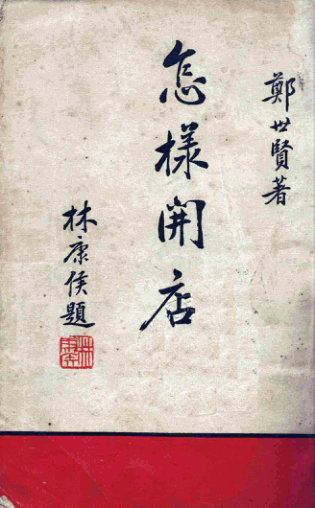 鄭世賢著
怎樣開店
林康侯題